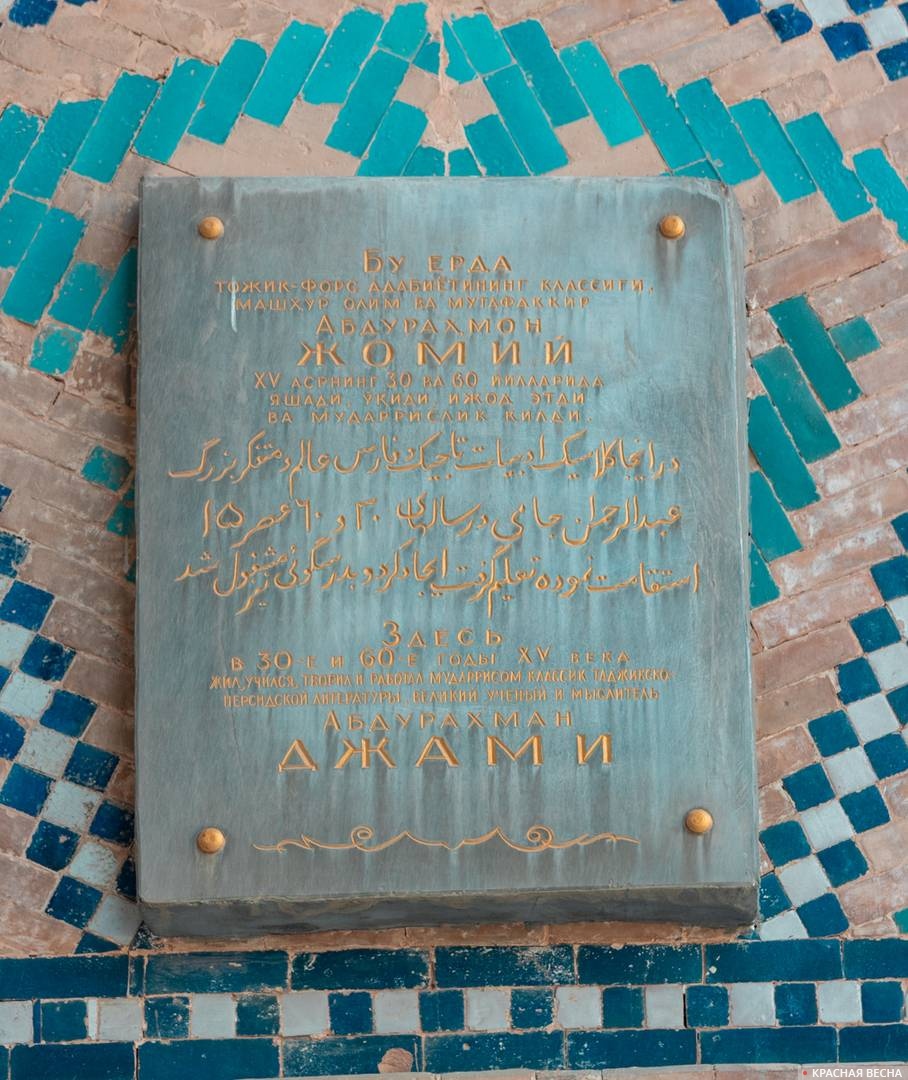 Бу ерда
тожик-форс адабиётининг классиги,
машҳур олим ва мутафаккир
Абдураҳмон
ЖОМИЙ
XV асрнинг 30 ва 60 йилларида
яшади, ўқиди, ижод этди
ва мударрислик қилди.
در اینجا کلاسیک ادبیات تاجیک و فارس عالم و متفکر بزرگ
عبدالرحمن جامی در سالهای ۳۰ و ۶۰ عصر ۱۵
استقامت نموده تعلیم گرفت ایجاد کرد و بدرسگوئی نیز مشغول شد
Здесь
в 30-е и 60-е годы XV века
жил, учился, творил и работал мударрисом классик таджикско-
персидской литературы, великий ученый и мыслитель
Абдурахман
ДЖАМИ
КРАСНАЯ ВЕСНА